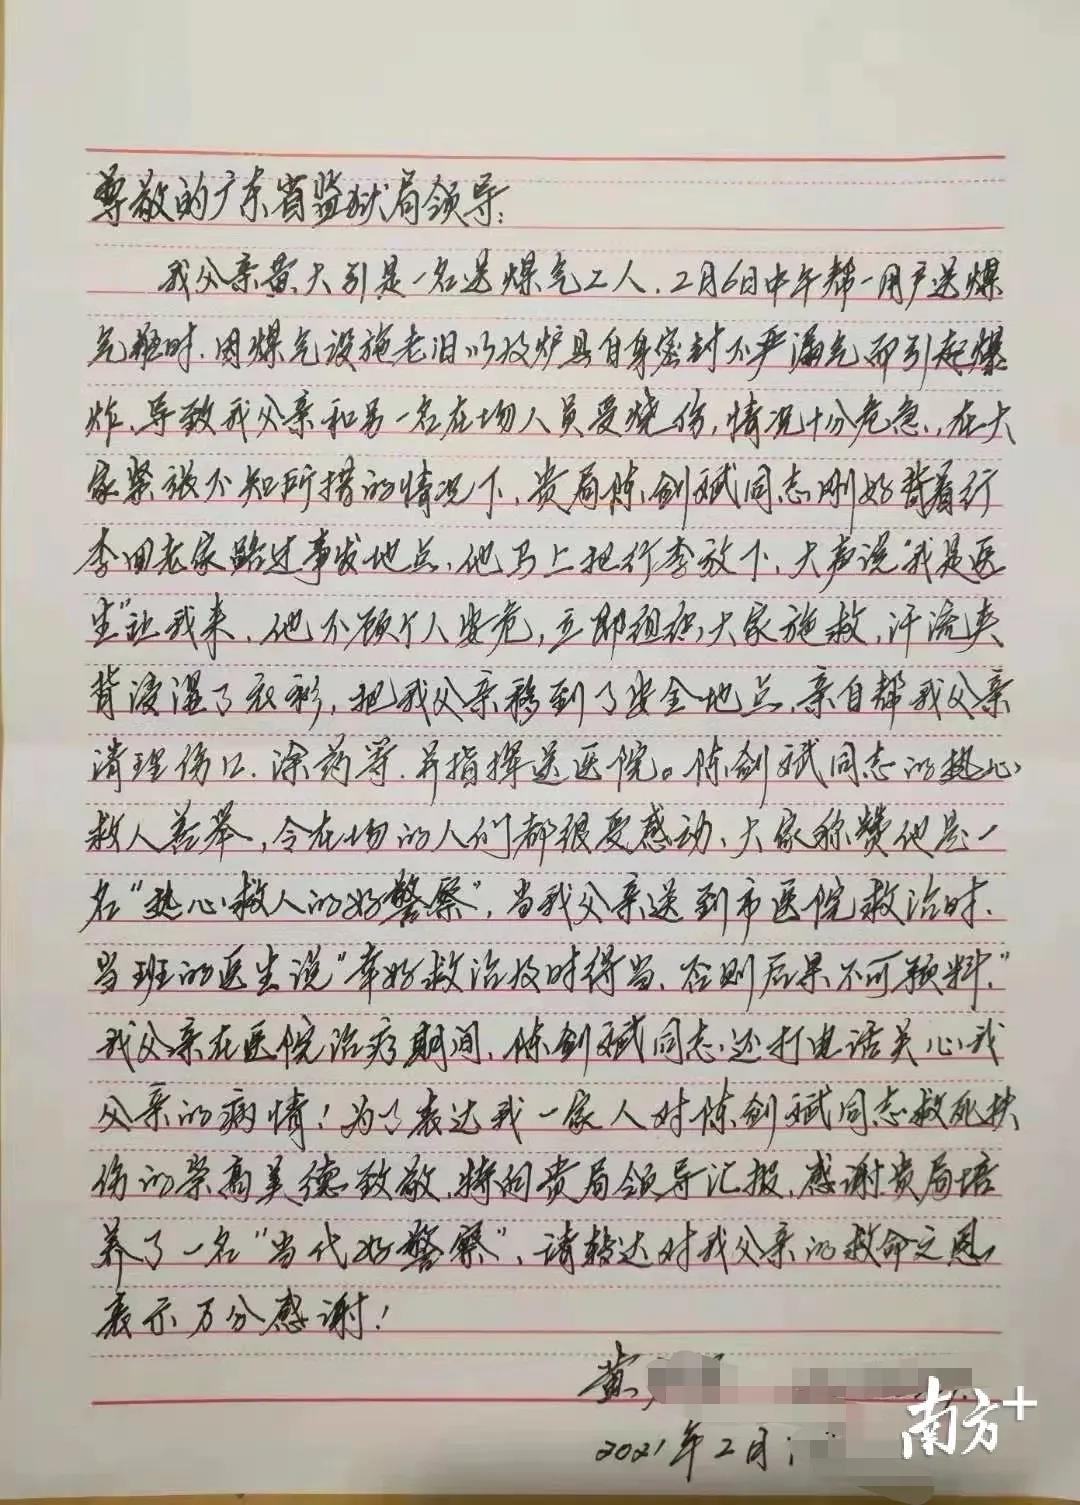 尊敬的广东省监狱局领导：
我父亲黄大引是一名送煤气工人，2月6日中午帮一用户送煤
气瓶时，因煤气设施老旧以及炉具自身密封不严漏气而引起爆
炸、导致我父亲和另一名在场人员受烧伤，情况十分危急，在大
家紧张不知所措的情况下，贵局陈剑斌同志刚好背着行
李回老家路过事发地点，他马上把行李放下，大声说“我是医
生”让我来，他不顾个人安危，立即组织大家施救，汗流夹
背浸湿了衣衫，把我父亲移到了安全地点，亲自帮我父亲
清理伤口、涂药等，并指挥送医院。陈剑斌同志的热心
救人善举，令在场的人们都很受感动、大家称赞他是一
名“热心救人的好警察”，当我父亲送到市医院救治时，
当班的医生说“幸好救治及时得当，否则后果不可预料”
我父亲在医院治疗期间，陈剑斌同志还打电话关心我
父亲的病情！为了表达我一家人对陈剑斌同志救死扶
伤的崇高美德致敬，特向贵局领导汇报，感谢贵局培
养了一名“当代好警察”，请转达对我父亲的救命之恩
表示万分感谢！
黄
2021年2月
南方+